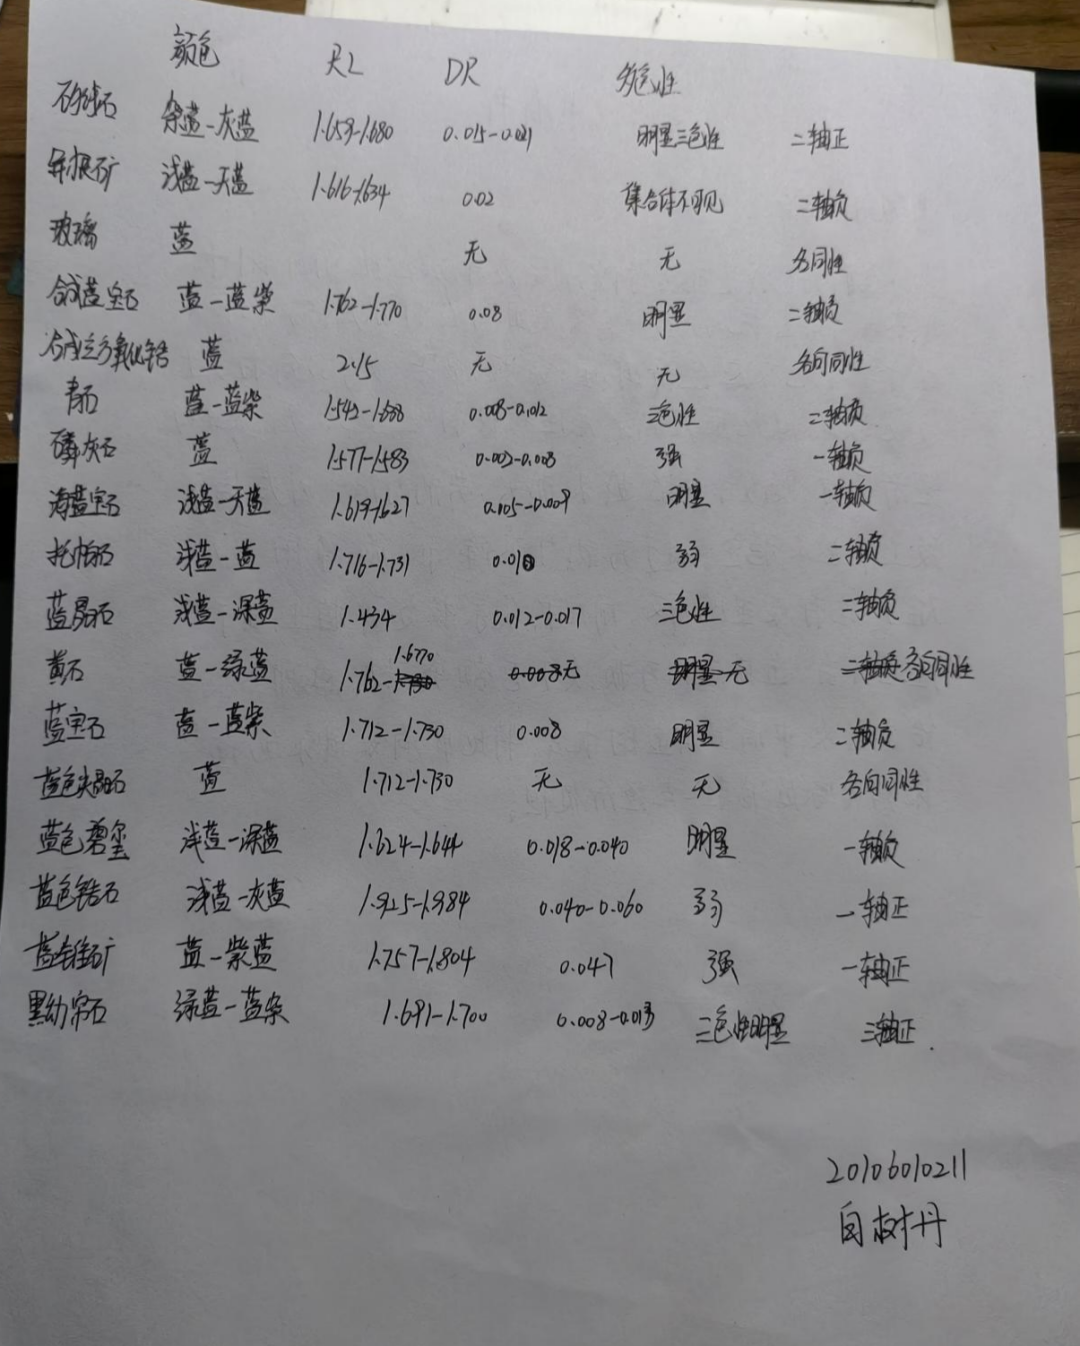 颜色 RL DR 多色性
矽线石 紫蓝-灰蓝 1.659-1.680 0.015-0.021 明显三色性 二轴正
异极矿 浅蓝-天蓝 1.616-1.634 0.02 集合体不可见 二轴负
玻璃 蓝 无 无 各同性
合成蓝宝石 蓝-蓝紫 1.762-1.770 0.08 明显 二轴负
合成立方氧化锆 蓝 2.15 无 无 各向同性
青石 蓝-蓝紫 1.542-1.688 0.008-0.012 三色性 二轴负
磷灰石 蓝 1.577-1.583 0.003-0.008 强 一轴负
海蓝宝石 浅蓝-天蓝 1.619-1.627 0.005-0.009 明显 一轴负
托帕石 浅蓝-蓝 1.716-1.731 弱 二轴负
蓝晶石 浅蓝-深蓝 1.434 0.012-0.017 三色性 二轴负
黄石 蓝-绿蓝 1.762-1.6770 无 无 各向同性
蓝宝石 蓝-蓝紫 1.712-1.730 0.008 明显 二轴负
蓝色尖晶石 蓝 1.712-1.730 无 无 各向同性
蓝色碧玺 浅蓝-深蓝 1.624-1.644 0.018-0.040 明显 一轴负
蓝色锆石 浅蓝-灰蓝 1.925-1.984 0.040-0.060 弱 一轴正
蓝锥矿 蓝-紫蓝 1.757-1.804 0.047 强 一轴正
黝帘石 绿蓝-蓝紫 1.691-1.700 0.008-0.013 三色性明显 二轴正.
20106010211
白树丹